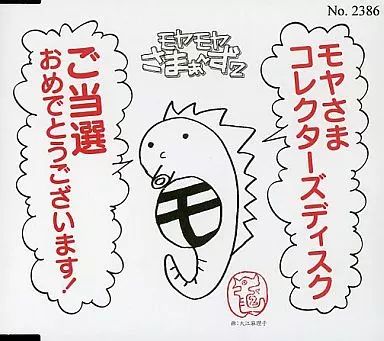 No. 2386
モヤモヤ
さまぁ~ず2
モヤさま
コレクターズディスク
ご当選
おめでとうございます!
モ
画：大江麻理子